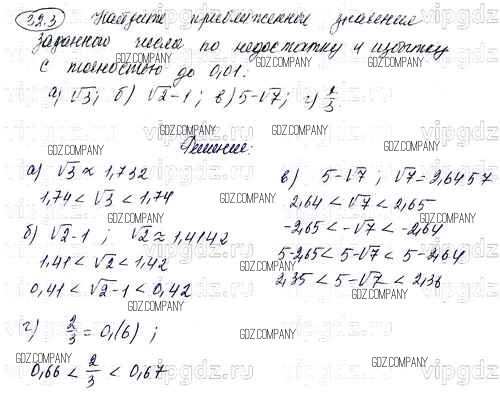 32.3 Найдите приближенные значения
заданного числа по недостатку и избытку
с точностью до 0,01:
а) √3; б) √2-1; в) 5-√7; г) 2/3.
Решение:
а) √3 ≈ 1,732
1,74 < √3 < 1,74
б) √2-1 ; √2 ≈ 1,4142
1,41 < √2 < 1,42
0,41 < √2-1 < 0,42
г) 2/3 = 0,(6) ;
0,66 < 2/3 < 0,67
в) 5-√7 ; √7 = 2,6457
2,64 < √7 < 2,65
-2,65 < -√7 < -2,64
5-2,65 < 5-√7 < 5-2,64
2,35 < 5-√7 < 2,36
GDZ.COMPANY
vipgdz.ru